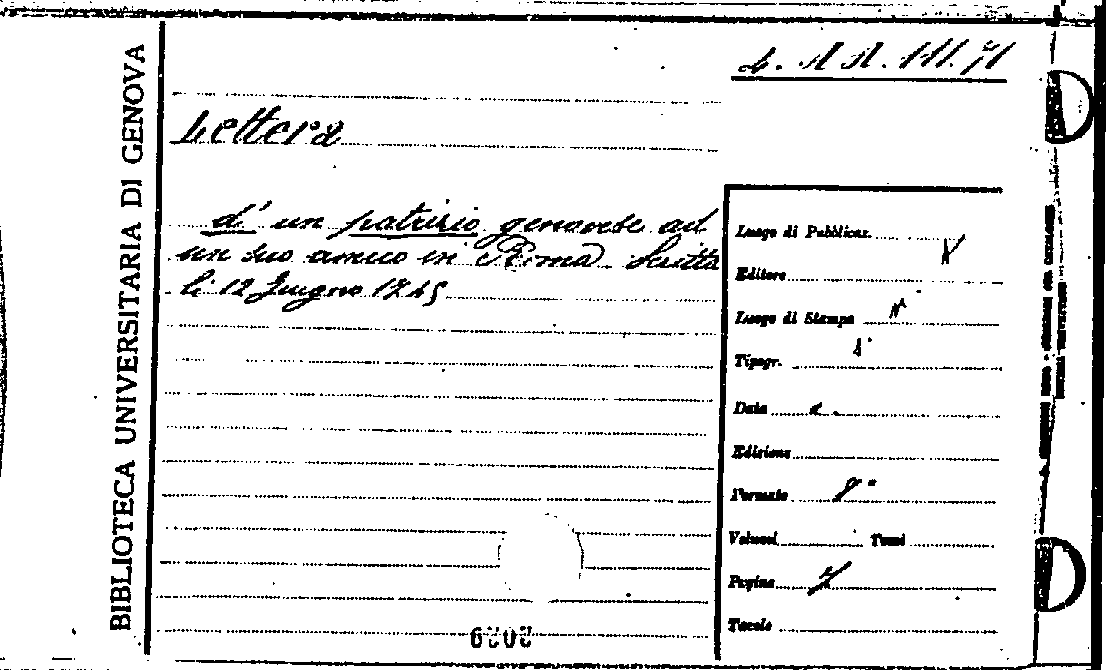 BIBLIOTECA UNIVERSITARIA DI GENOVA
Lettera
d' un patrizio genovese ad
un suo amico in Roma. Scritta
li 12 Giugno 1745
Luogo di Pubblicaz. N
Editore
Luogo di Stampa N
Tipogr.
Data
Edizione
Formato 8°
Volumi Tomi
Pagine 7
Tavole